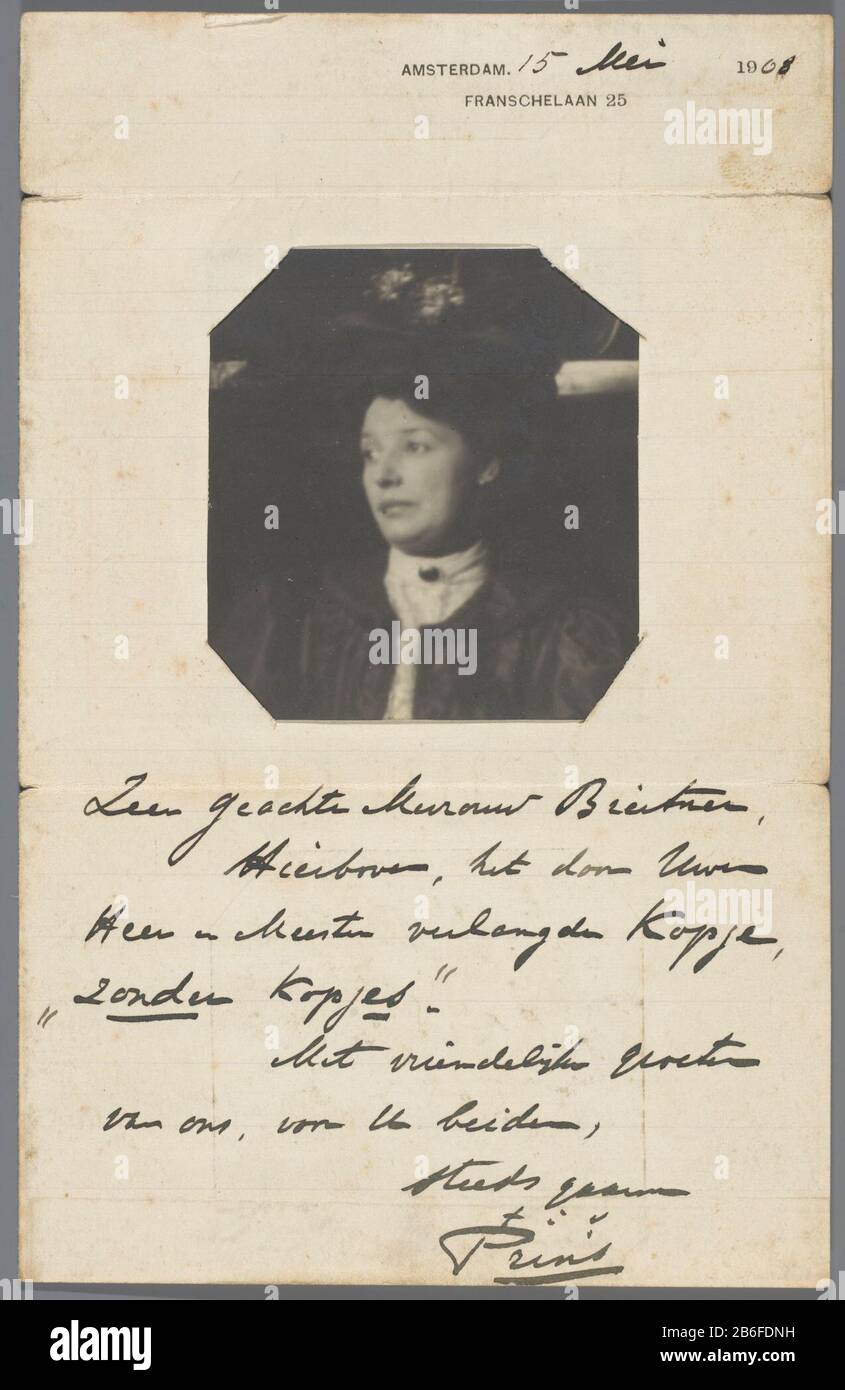 AMSTERDAM. 15 Mei 1908
FRANSCHELAAN 25
Zeer geachte Mevrouw Breitner,
Hierboven, het door Uwen
Heer en Meester verlangde Kopje,
„zonder Kopjes".
Met vriendelijke groeten
van ons, voor U beiden,
steeds gaarne
Prins
alamy
Image ID: 2B6FDNH
www.alamy.com